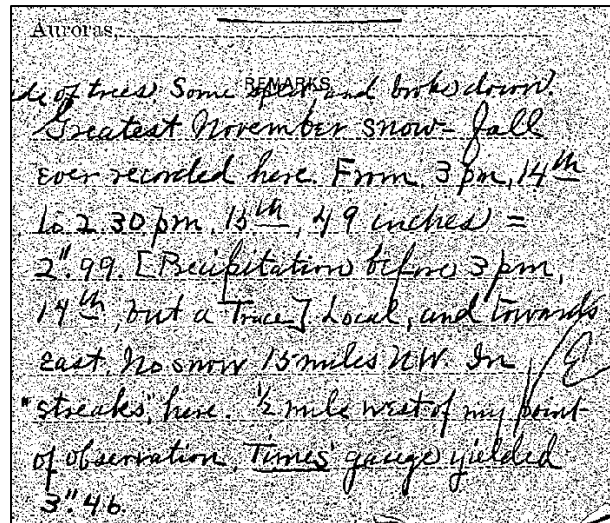 Auroras,
REMARKS
ide of trees. Some and broke down.
Greatest November snow-fall
ever recorded here. From 3 pm, 14th
to 2.30 pm, 15th, 49 inches =
2".99. [Precipitation before 3 pm,
14th, but a Trace]. Local, and towards
east. No snow 15 miles NW. In
"streaks", here. ½ mile west of my point
of observation, Times' gauge yielded
3".46.